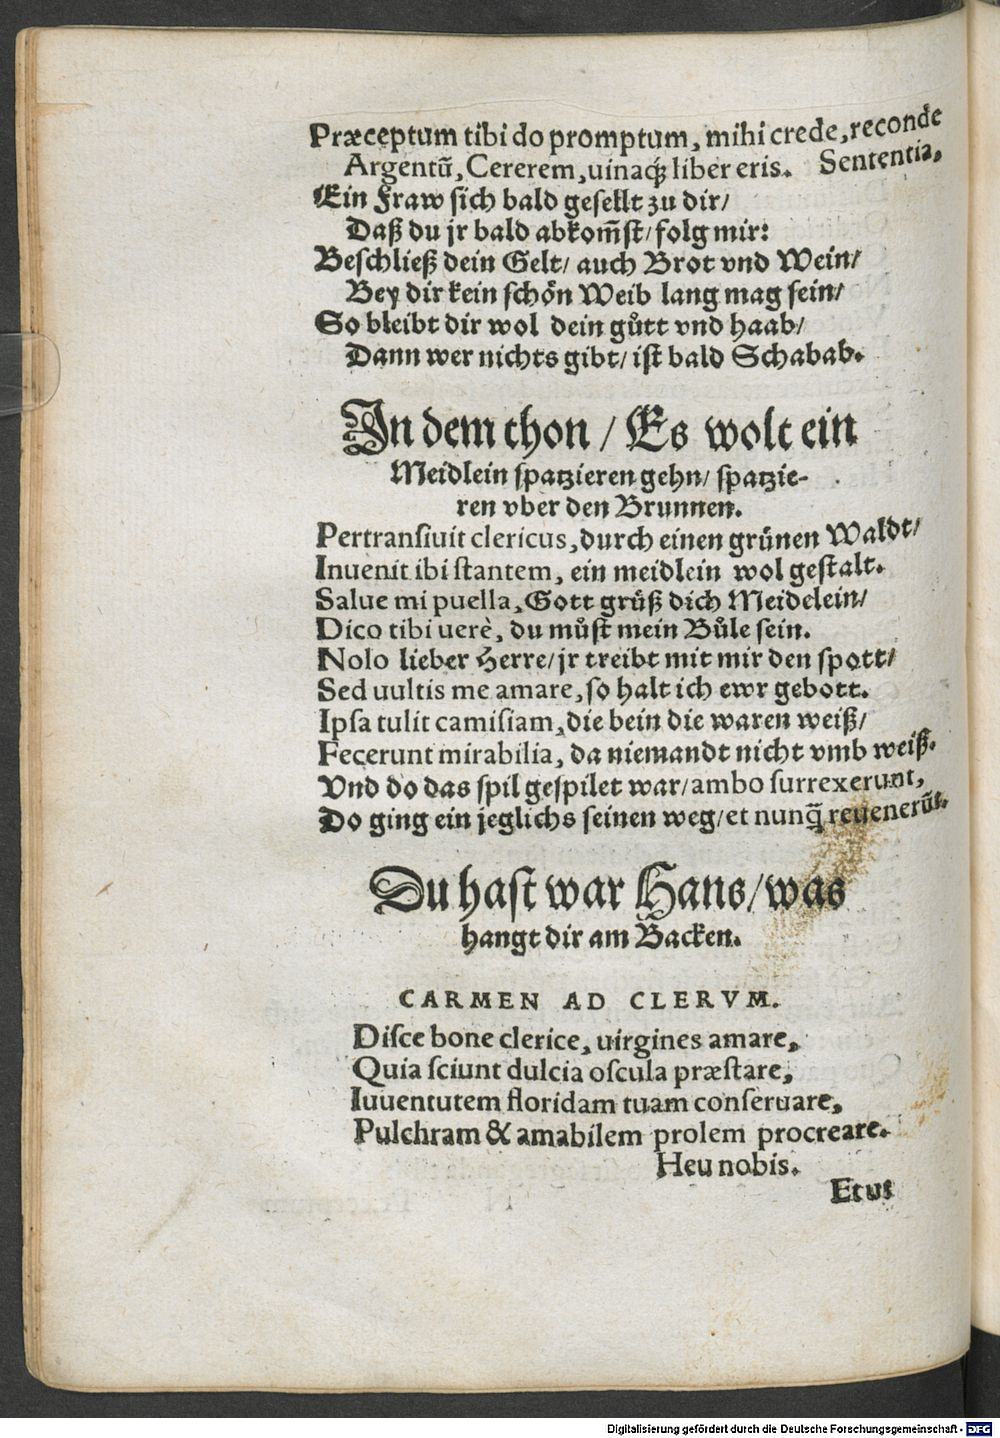 Præceptum tibi do promptum, mihi crede, reconde
Argentũ, Cererem, uinaq́; liber eris. Sententia,
Ein Fraw sich bald gesellt zu dir/
Daß du jr bald abkom̃st/ folg mir:
Beschließ dein Gelt/ auch Brot vnd Wein/
Bey dir kein schön Weib lang mag sein/
So bleibt dir wol dein gůtt vnd haab/
Dann wer nichts gibt/ ist bald Schabab.
In dem thon / Es wolt ein
Meidlein spatzieren gehn/ spatzie-
ren vber den Brunnen.
Pertransiuit clericus, durch einen grünen Waldt/
Inuenit ibi stantem, ein meidlein wol gestalt.
Salue mi puella, Gott grüß dich Meidelein/
Dico tibi uerè, du můst mein Bůle sein.
Nolo lieber Herre/ jr treibt mit mir den spott/
Sed uultis me amare, so halt ich ewr gebott.
Ipsa tulit camisiam, die bein die waren weiß/
Fecerunt mirabilia, da niemandt nicht vmb weiß.
Vnd do das spil gespilet war/ ambo surrexerunt,
Do ging ein jeglichs seinen weg/ et nunq̃ reuenerũt.
Du hast war Hans/ was
hangt dir am Backen.
CARMEN AD CLERVM.
Disce bone clerice, uirgines amare,
Quia sciunt dulcia oscula præstare,
Iuuentutem floridam tuam conseruare,
Pulchram & amabilem prolem procreare.
Heu nobis.
Et us
Digitalisierung gefördert durch die Deutsche Forschungsgemeinschaft - DFG